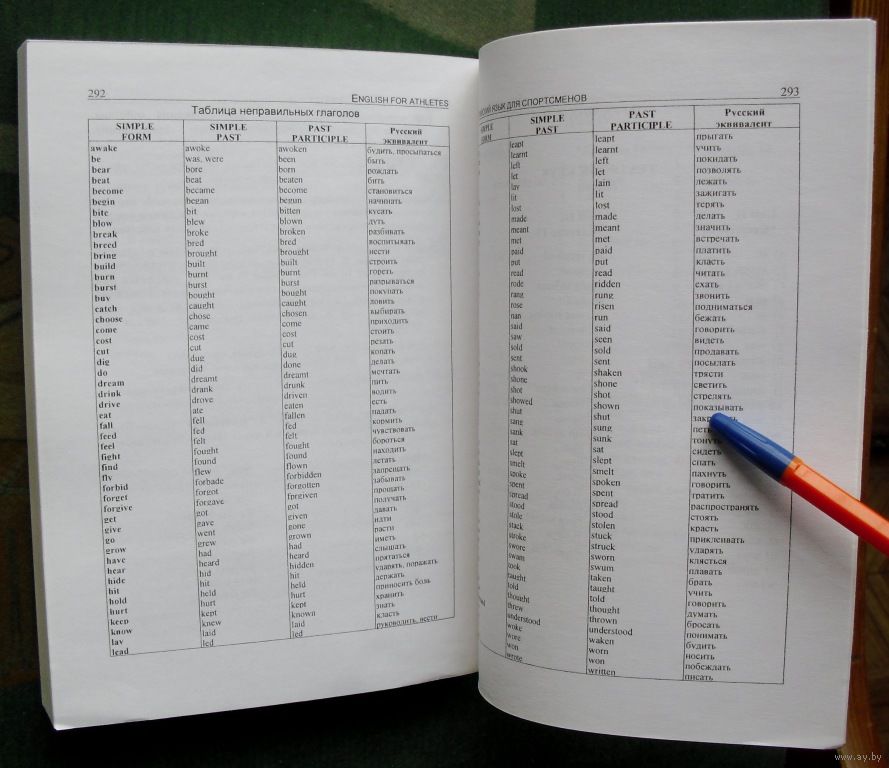 292
ENGLISH FOR ATHLETES
Таблица неправильных глаголов
SIMPLE FORM SIMPLE PAST PAST PARTICIPLE Русский эквивалент
awake awoke awoken будить, просыпаться
be was, were been быть
bear bore born рождать
beat beat beaten бить
become became become становиться
begin began begun начинать
bite bit bitten кусать
blow blew blown дуть
break broke broken разбивать
breed bred bred воспитывать
bring brought brought нести
build built built строить
burn burnt burnt гореть
burst burst burst разрываться
buy bought bought покупать
catch caught caught ловить
choose chose chosen выбирать
come came come приходить
cost cost cost стоить
cut cut cut резать
dig dug dug копать
do did done делать
dream dreamt dreamt мечтать
drink drank drunk пить
drive drove driven водить
eat ate eaten есть
fall fell fallen падать
feed fed fed кормить
feel felt felt чувствовать
fight fought fought бороться
find found found находить
fly flew flown летать
forbid forbade forbidden запрещать
forget forgot forgotten забывать
forgive forgave fprgiven прощать
get got got получать
give gave given давать
go went gone идти
grow grew grown расти
have had had иметь
hear heard heard слышать
hide hid hidden прятаться
hit hit hit ударять, поражать
hold held held держать
hurt hurt hurt приносить боль
keep kept kept хранить
know knew known знать
lay laid laid класть
lead led led руководить, вести
ЯЗЫК ДЛЯ СПОРТСМЕНОВ
293
FORM SIMPLE PAST PAST PARTICIPLE Русский эквивалент
leapt leapt прыгать
learnt learnt учить
left left покидать
let let позволять
lay lain лежать
lit lit зажигать
lost lost терять
made made делать
meant meant значить
met met встречать
paid paid платить
put put класть
read read читать
rode ridden ехать
rang rung звонить
rose risen подниматься
ran run бежать
said said говорить
saw seen видеть
sold sold продавать
sent sent посылать
shook shaken трясти
shone shone светить
shot shot стрелять
showed shown показывать
shut shut
sang sung петь
sank sunk тонуть
sat sat сидеть
slept slept спать
smelt smelt пахнуть
spoke spoken говорить
spent spent тратить
spread spread распространять
stood stood стоять
stole stolen красть
stack stuck приклеивать
stroke struck ударять
swore sworn клясться
swam swum плавать
took taken брать
taught taught учить
told told говорить
thought thought думать
threw thrown бросать
understood understood понимать
woke waken будить
wore worn носить
won won побеждать
wrote written писать
www.ay.by